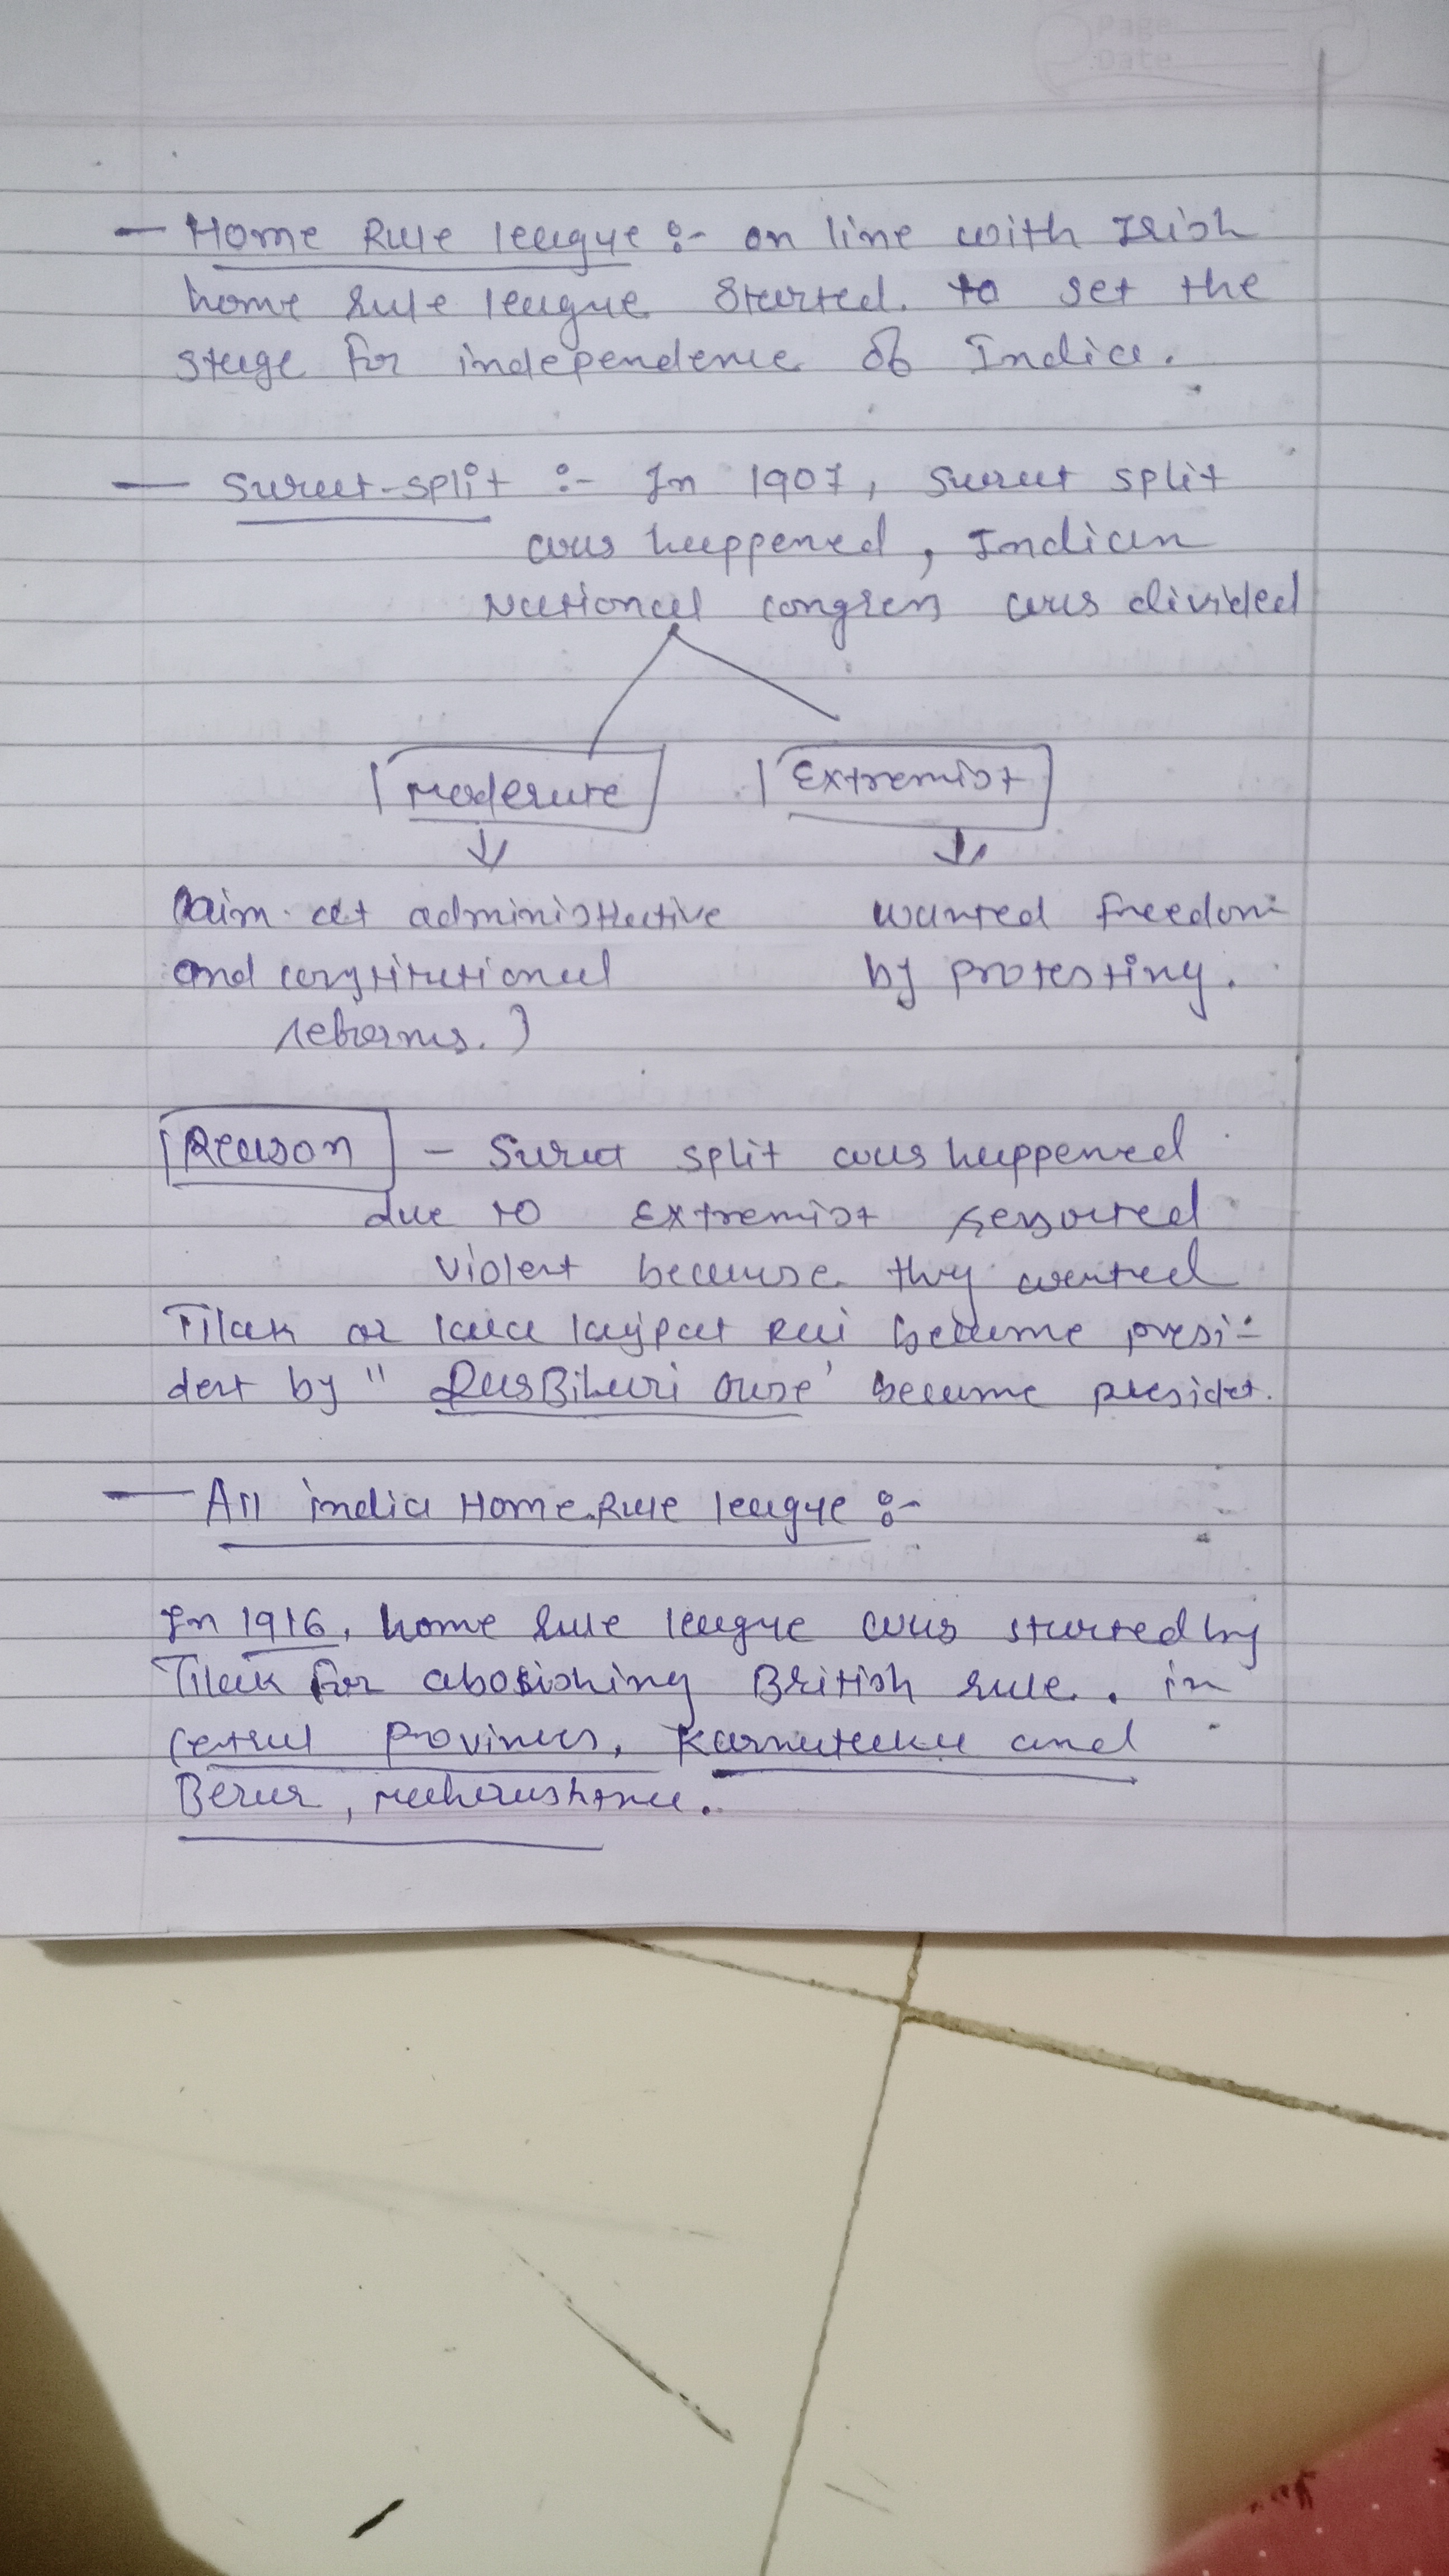 Page
Date
— Home Rule league :- on line with Irish
home rule league started. to set the
stage for independence of India.
— Surat-split :- In 1907, Surat split
was happened, Indian
National congress was divided
Moderate Extremist
(aim at administrative wanted freedom
and constitutional by protesting.
reforms.)
Reason - Surat split was happened
due to Extremist resorted
violent because they wanted
Tilak or lala lajpat Rai became presi-
dent by " RasBihari Ouse' became presidet.
— All india Home Rule league :-
In 1916, home rule league was started by
Tilak for abolishing British rule. in
Cetral provinces, Karnataka and
Berar, maharashtra.